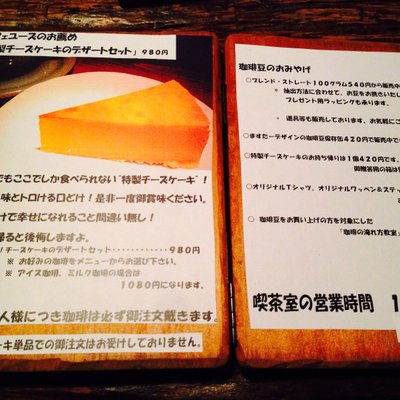 フェユーズのお薦め
製チーズケーキのデザートセット」980円
でもここでしか食べられない"特製チーズケーキ"！
味とトロける口どけ！是非一度御賞味ください。
けで幸せになれること間違い無し！
帰ると後悔しますよ。
！チーズケーキのデザートセット‥‥‥‥‥‥980円
※ お好みの珈琲をメニューからお選び下さい。
※ アイス珈琲、ミルク珈琲の場合は
1080円になります。
人様につき珈琲は必ず御注文戴きます。
ーキ単品での御注文はお受けしておりません。
珈琲豆のおみやげ
○ブレンド・ストレート100グラム540円から販売中
※ 抽出方法に合わせて、お豆をお挽きいたし
プレゼント用ラッピングも承ります。
※ 道具等も販売しております。お気軽にご
○ますたーデザインの珈琲豆保存缶420円で販売中で
○特製チーズケーキのお持ち帰りは1個420円です。
御贈答用の箱は
○オリジナルTシャツ、オリジナルワッペン＆ステッ
○ 珈琲豆をお買い上げの方を対象にした
「珈琲の淹れ方教室」
喫茶室の営業時間 1